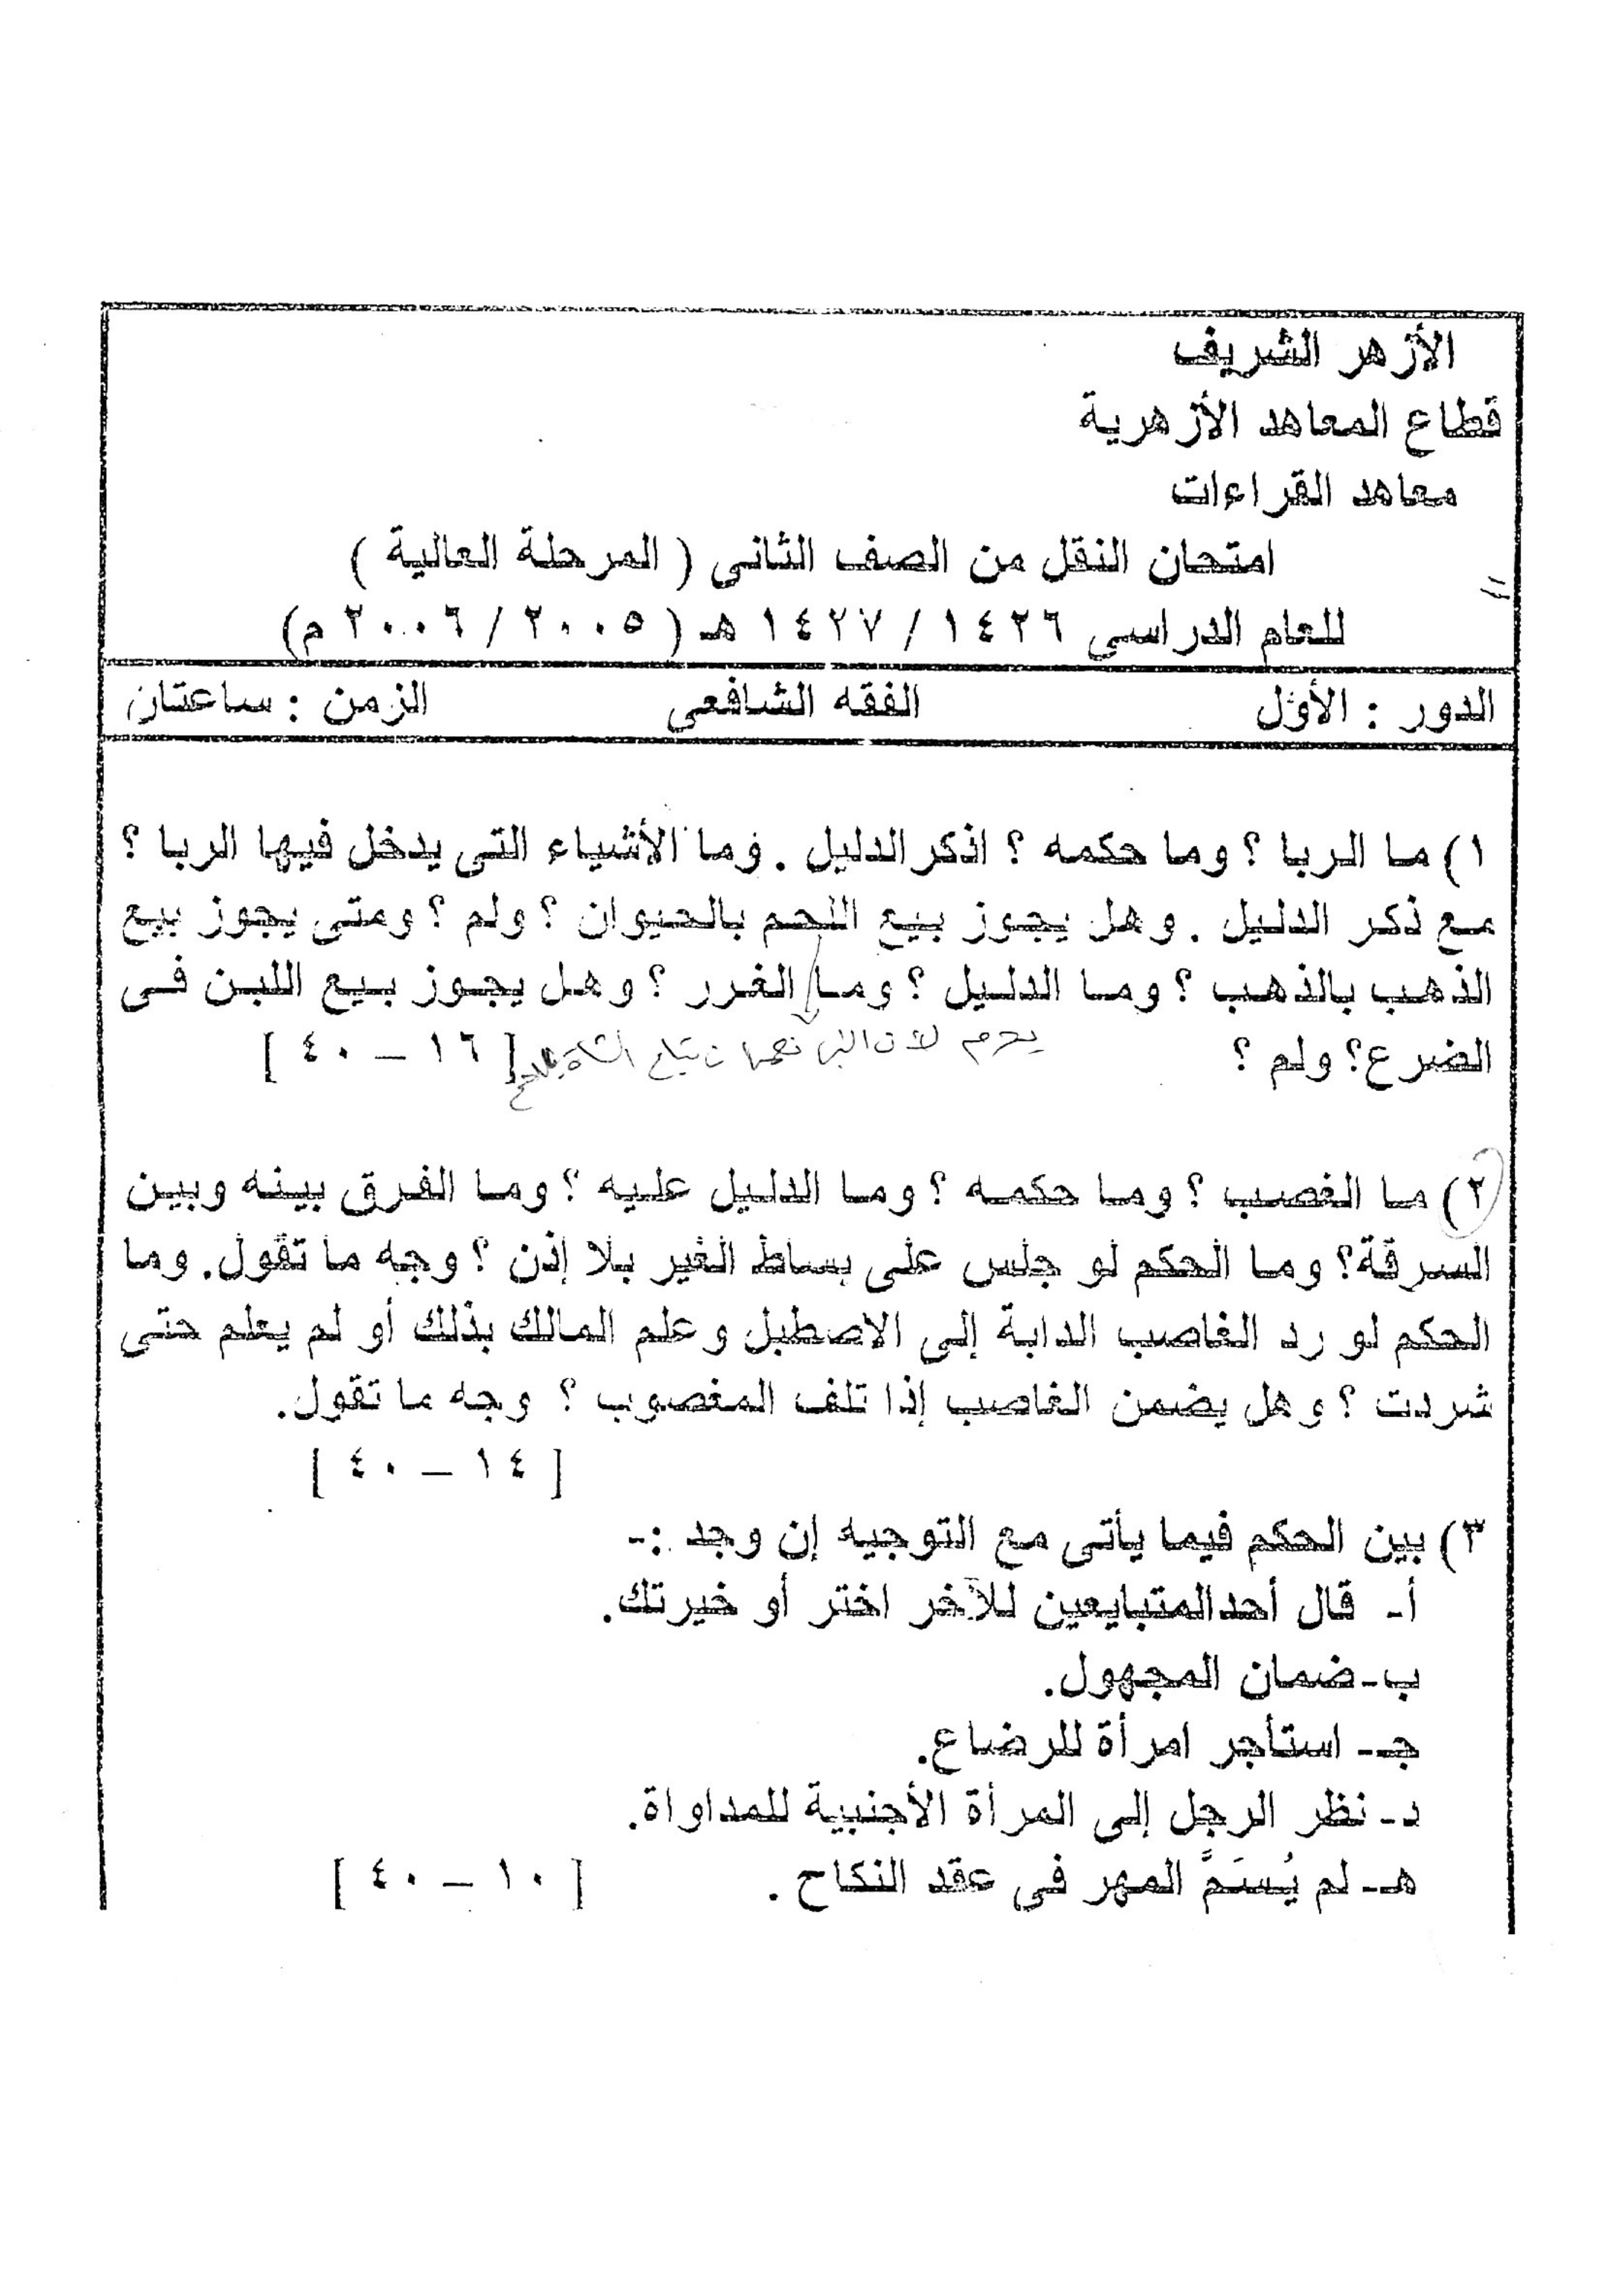 الأزهر الشريف
قطاع المعاهد الأزهرية
معاهد القراءات
امتحان النقل من الصف الثانى ( المرحلة العالية )
للعام الدراسى ١٤٢٦ / ١٤٢٧ هـ ( ٢٠٠٥ / ٢٠٠٦ م)
الدور : الأول الفقه الشافعى الزمن : ساعتان
١) ما الربا ؟ وما حكمه ؟ اذكر الدليل . وما الأشياء التى يدخل فيها الربا ؟
مع ذكر الدليل . وهل يجوز بيع اللحم بالحيوان ؟ ولم ؟ ومتى يجوز بيع
الذهب بالذهب ؟ وما الدليل ؟ وما الغرر ؟ وهل يجوز بيع اللبن فى
الضرع؟ ولم ؟ [ ١٦ – ٤٠ ]
يحرم لأن النبى نهى أن تباع الشاة
٢) ما الغصب ؟ وما حكمه ؟ وما الدليل عليه ؟ وما الفرق بينه وبين
السرقة؟ وما الحكم لو جلس على بساط الغير بلا إذن ؟ وجه ما تقول. وما
الحكم لو رد الغاصب الدابة إلى الاصطبل وعلم المالك بذلك أو لم يعلم حتى
شردت ؟ وهل يضمن الغاصب إذا تلف المغصوب ؟ وجه ما تقول.
[ ١٤ – ٤٠ ]
٣) بين الحكم فيما يأتى مع التوجيه إن وجد :-
أ- قال أحد المتبايعين للآخر اختر أو خيرتك.
ب- ضمان المجهول.
جـ- استأجر امرأة للرضاع.
د- نظر الرجل إلى المرأة الأجنبية للمداواة.
هـ- لم يُسَمَّ المهر فى عقد النكاح . [ ١٠ – ٤٠ ]